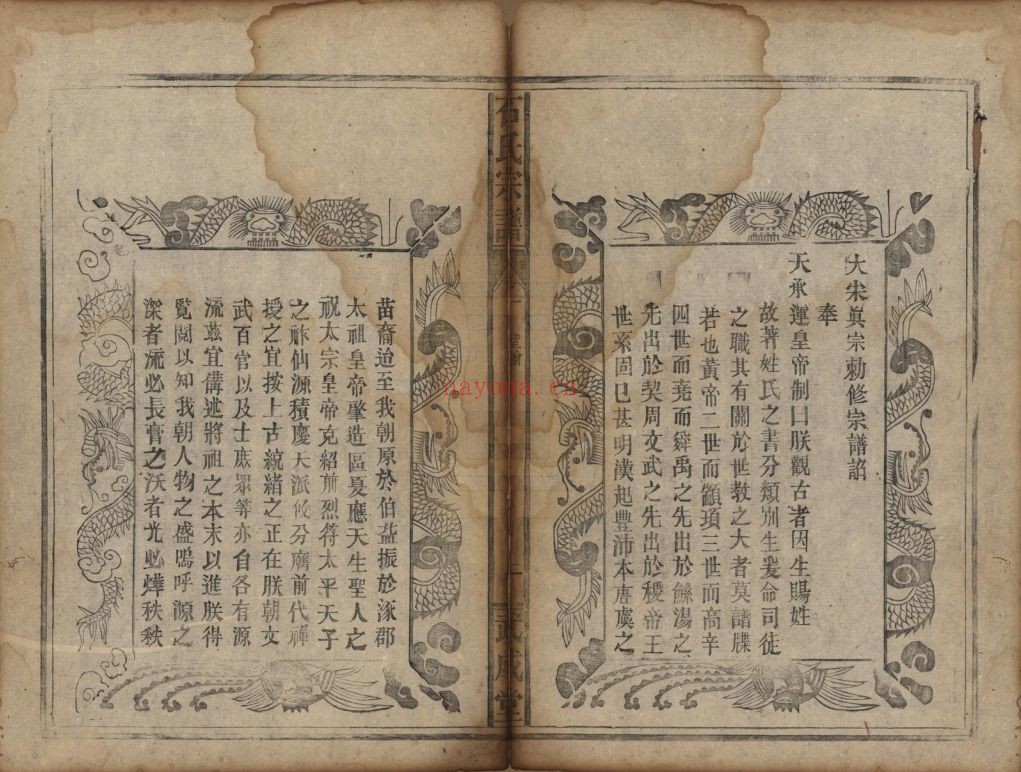 大宋眞宗勅修宗譜詔
奉
天承運皇帝制曰朕觀古者因生賜姓
故著姓氏之書分類別生爰命司徒
之職其有關於世教之大者莫譜牒
若也黃帝二世而顓頊三世而高辛
四世而堯而舜禹之先出於鯀湯之
先出於契周文武之先出於稷帝王
世系固已甚明漢起豐沛本唐虞之
石氏宗譜
卷一
武威堂
苗裔迨至我朝原於伯益振於涿郡
太祖皇帝肇造區夏應天生聖人之
祝太宗皇帝克紹前烈符太平天子
之祚仙源積慶天派攸分膺前代禪
授之宜按上古統緒之正在朕朝文
武百官以及士庶眾等亦自各有源
流茲宜備述將祖之本末以進朕得
覧閱以知我朝人物之盛嗚呼源之
深者流必長膏之沃者光必燁秩秩
nayona.cn